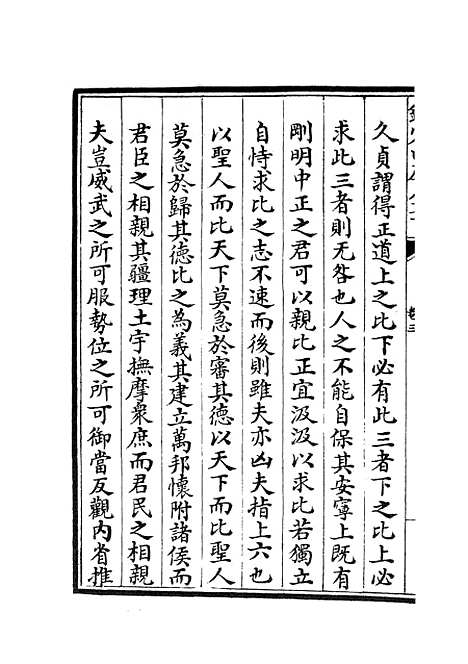 久貞謂得正道上之比下必有此三者下之比上必
求此三者則无咎也人之不能自保其安寧上既有
剛明中正之君可以親比正宜汲汲以求比若獨立
自恃求比之志不速而後則雖夫亦凶夫指上六也
以聖人而比天下莫急於審其德以天下而比聖人
莫急於歸其德比之為義其建立萬邦懷附諸侯而
君臣之相親其疆理土宇撫摩衆庶而君民之相親
夫豈威武之所可服勢位之所可御當反觀內省推